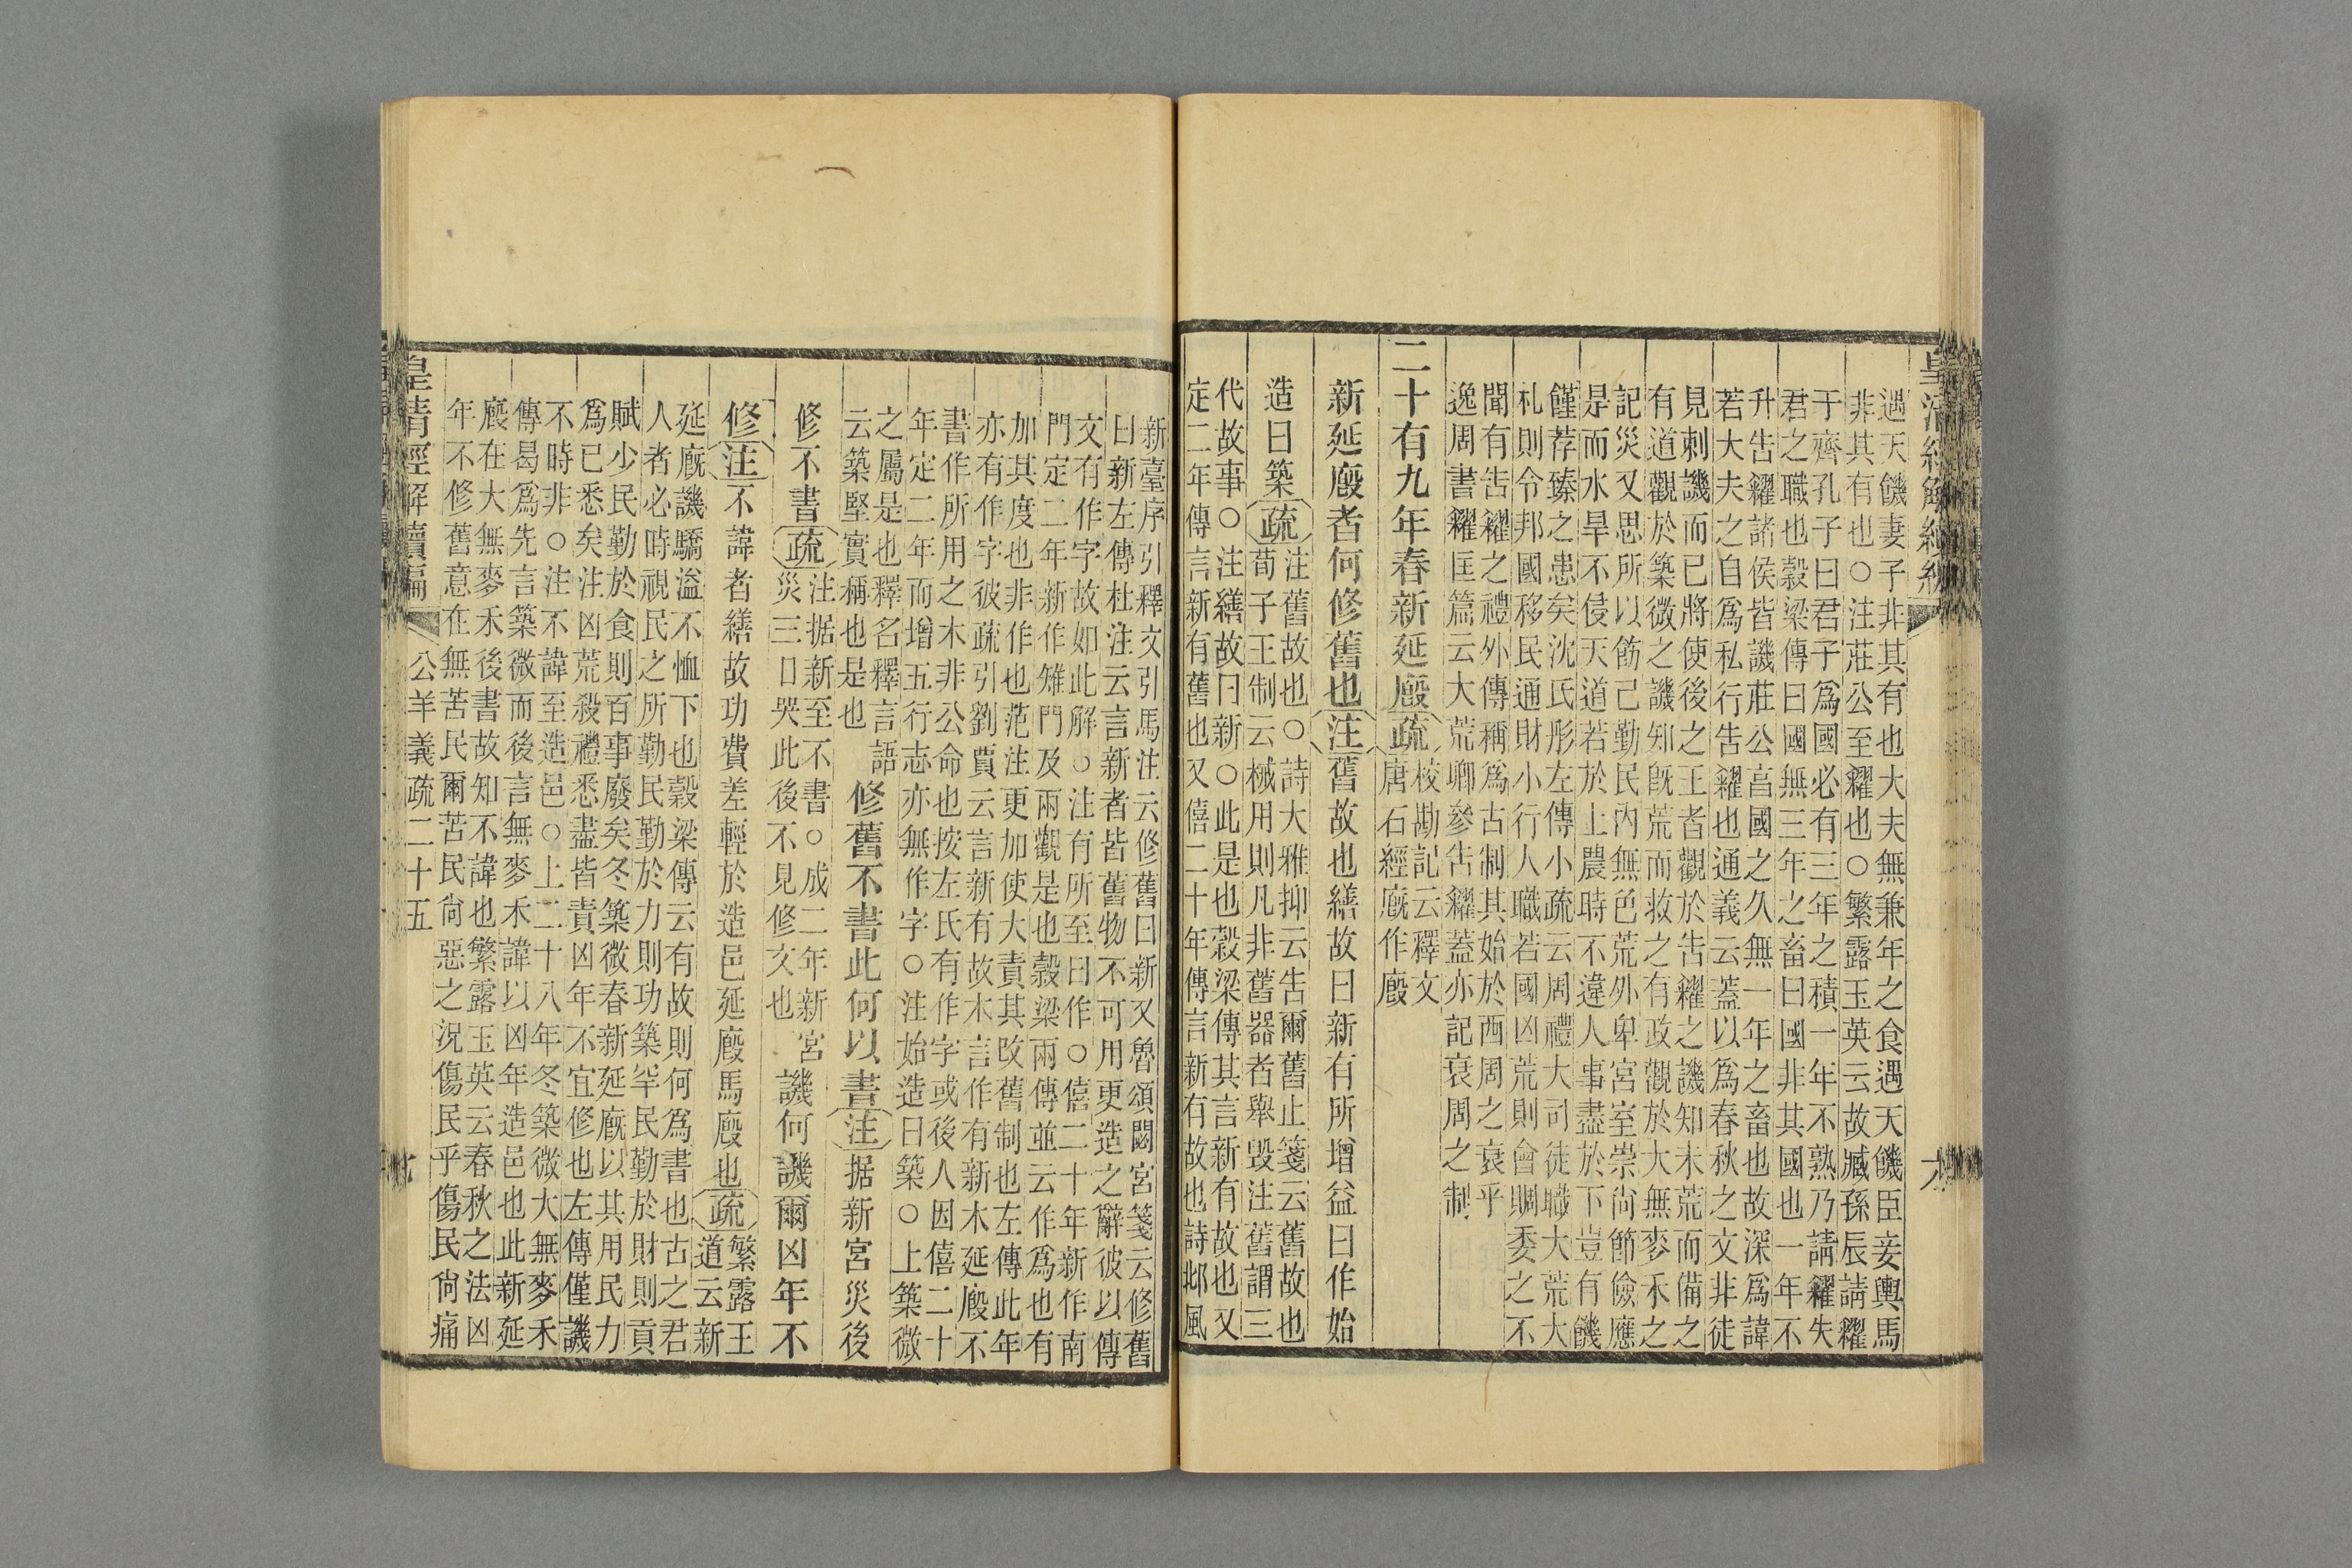 遇天饑妻子非其有也大夫無兼年之食遇天饑臣妾輿馬
非其有也○注莊公至糴也○繁露玉英云故臧孫辰請糴
于齊孔子曰君子爲國必有三年之積一年不熟乃請糴失
君之職也穀梁傳曰國無三年之畜曰國非其國也一年不
升告糴諸侯皆譏莊公言國之久無一年之畜也故深爲諱
若大夫之自爲私行告糴也通義云蓋以爲春秋之文非徒
見刺譏而已將使後之王者觀於告糴之譏知未荒而備之
有道觀於築微之譏知旣荒而救之有政觀於大無麥禾之
記災又思所以飭己勤民內無色荒外卑宮室崇尙節儉應
是而水旱不侵天道若於上農時不違人事盡於下豈有饑
饉荐臻之患矣沈氏彤左傳小疏云周禮大司徒職大荒大
札則令邦國移民通財小行人職若國凶荒則會賙委之不
聞有告糴之禮外傳稱爲古制其始於西周之衰乎
逸周書糴匡篇云大荒卿參告糴蓋亦記衰周之制
二十有九年春新延廏疏校勘記云釋文
唐石經廐作廏
新延廏者何修舊也注舊故也繕故曰新有所增益曰作始
造曰築疏注舊故也○詩大雅抑云告爾舊止箋云舊故也
荀子王制云械用則凡非舊器者舉毀注舊謂三
代故事○注繕故曰新○此是也穀梁傳其言新有故也又
定二年傳言新有舊也又僖二十年傳言新有故也詩邶風
新臺序引釋文引馬注云修舊曰新又魯頌閟宮箋云修舊
曰新左傳杜注云言新者皆舊物不可用更造之辭彼以傳
文有作字故如此解○注有所至曰作○僖二十年新作南
門定二年新作雉門及兩觀是也穀梁兩傳並云作爲也有
加其度也非作也范注更加使大責其改舊制也左傳此年
亦有作字彼疏引劉賈云言新有故木言作有新木延廏不
書作所用之木非公命也按左氏有作字或後人因僖二十
年定二年而增五行志亦無作字○注始造曰築○上築微
之屬是也釋名釋言語
云築堅實稱也是也
修舊不書此何以書注据新宮災後
修不書疏注据新至不書○成二年新宮
災三日哭此後不見修文也
譏何譏爾凶年不
修注不諱者繕故功費差輕於造邑延廏馬廏也疏繁露王
道云新
延廐譏驕溢不恤下也穀梁傳云有故則何爲書也古之君
人者必時視民之所勤民勤於力則功築罕民勤於財則貢
賦少民勤於食則百事廢矣冬築微春新延廐以其用民力
爲已悉矣注凶荒殺禮悉盡皆責凶年不宜修也左傳僅譏
不時非○注不諱至造邑○上二十八年冬築微大無麥禾
傳曷爲先言築微而後言無麥禾諱以凶年造邑也此新延
廏在大無麥禾後書故知不諱也繁露玉英云春秋之法凶
年不修舊意在無苦民爾苦民尙惡之況傷民乎傷民尙痛
皇淸經解續編
公羊義疏二十五